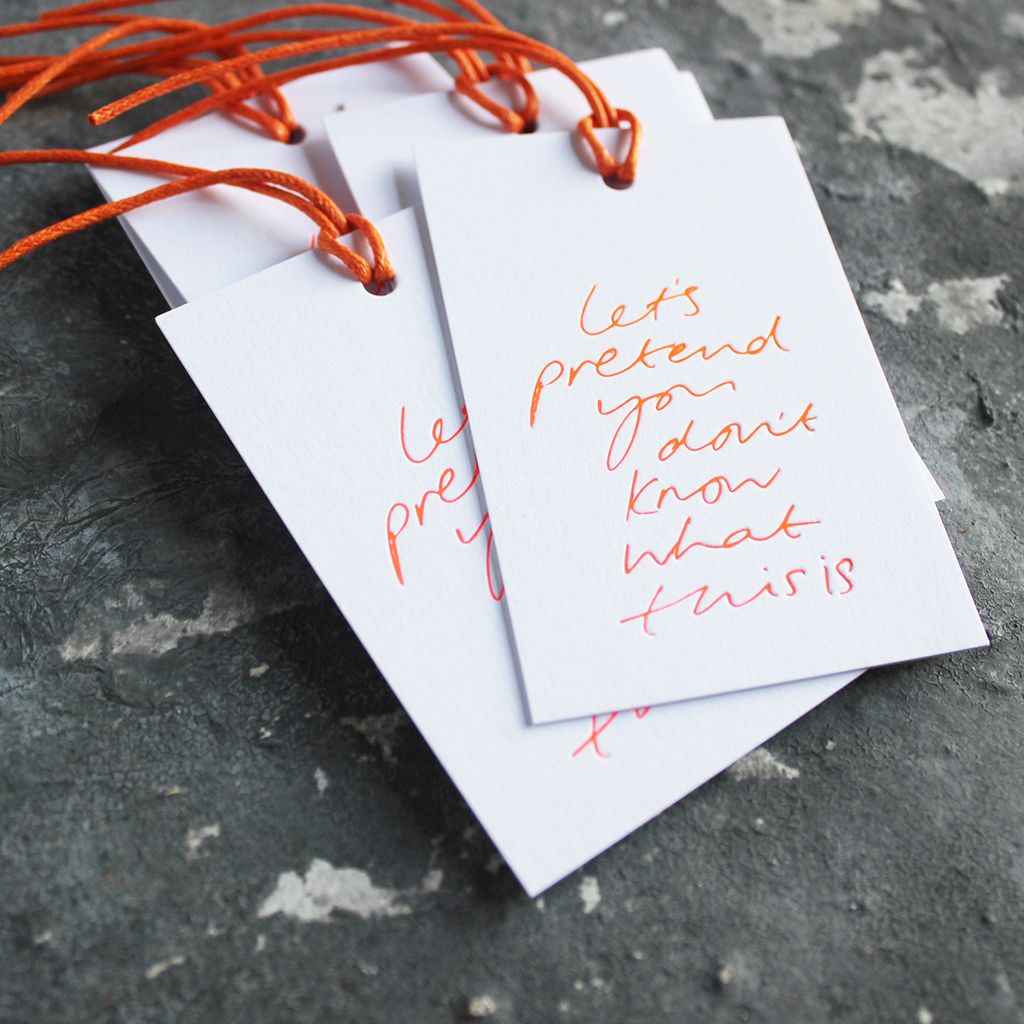 let's
pretend
you
don't
know
what
this is
le
pre
y